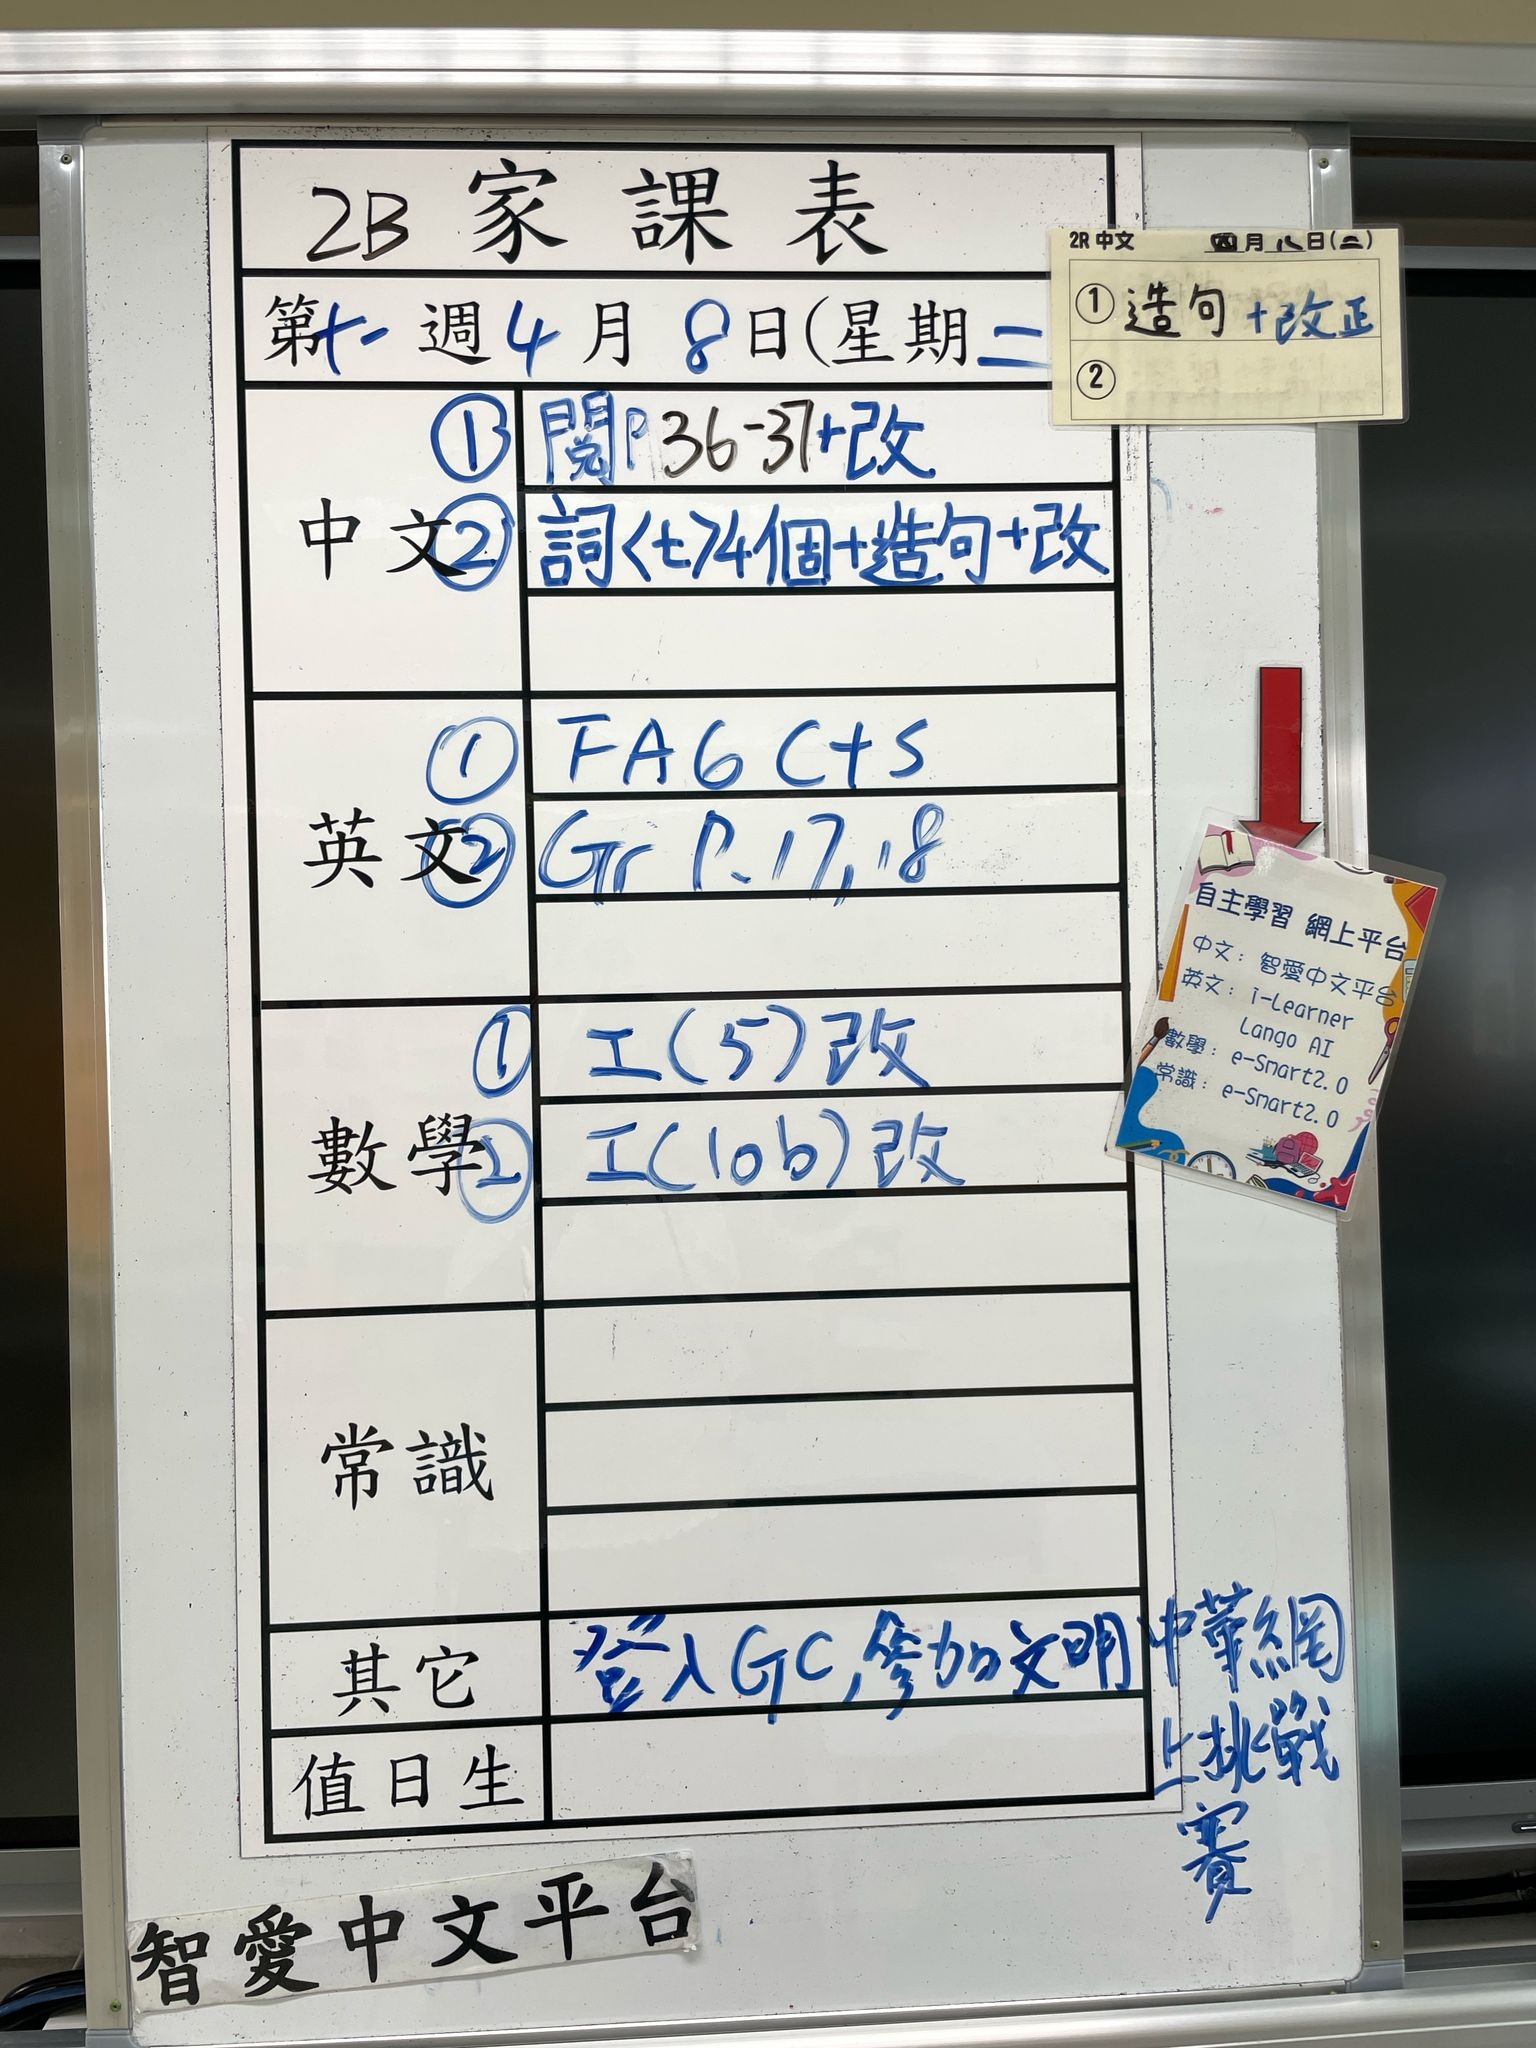 2B 家課表
第十一週4月8日(星期二
2R 中文 四月八日(二)
① 造句+改正
②
中文
① 閱P36-37+改
② 詞<七>4個+造句+改
英文
① FA6 C+S
② Gr P.17,18
數學
① 工(5)改
② 工(10b)改
常識
其它
登入GC,參加文明中華網
上挑戰
賽
值日生
自主學習 網上平台
中文：智愛中文平台
英文：i-Learner
Lango AI
數學：e-Smart2.0
常識：e-Smart2.0
智愛中文平台